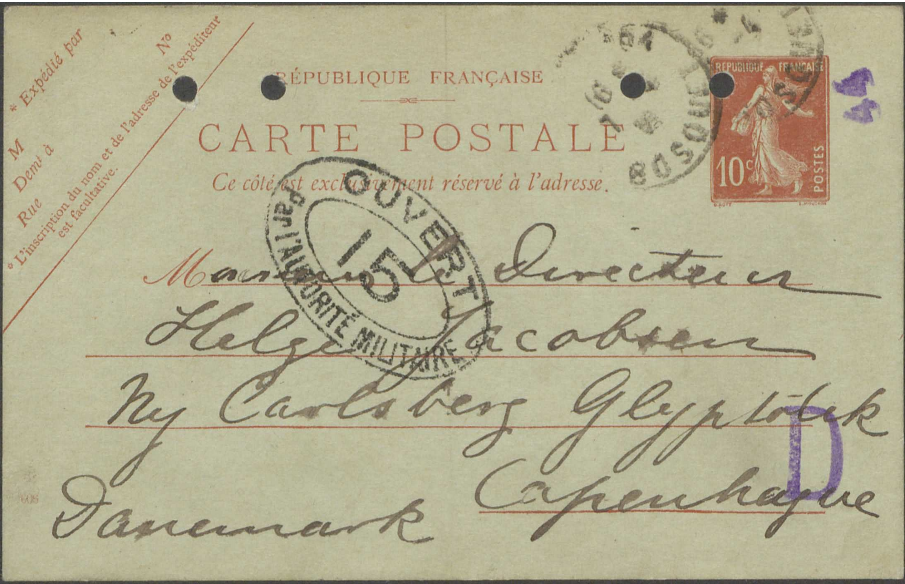 * Expédié par
N°
M
Demt à
Rue
* L'inscription du nom et de l'adresse de l'expéditeur
est facultative.
RÉPUBLIQUE FRANÇAISE
CARTE POSTALE
Ce côté est exclusivement réservé à l'adresse.
RÉPUBLIQUE FRANÇAISE
10c
POSTES
44
OUVERT
15
Par l'AUTORITÉ MILITAIRE
Monsieur le Directeur
Helge Jacobsen
Ny Carlsberg Glyptotek
D
Copenhague
Danemark